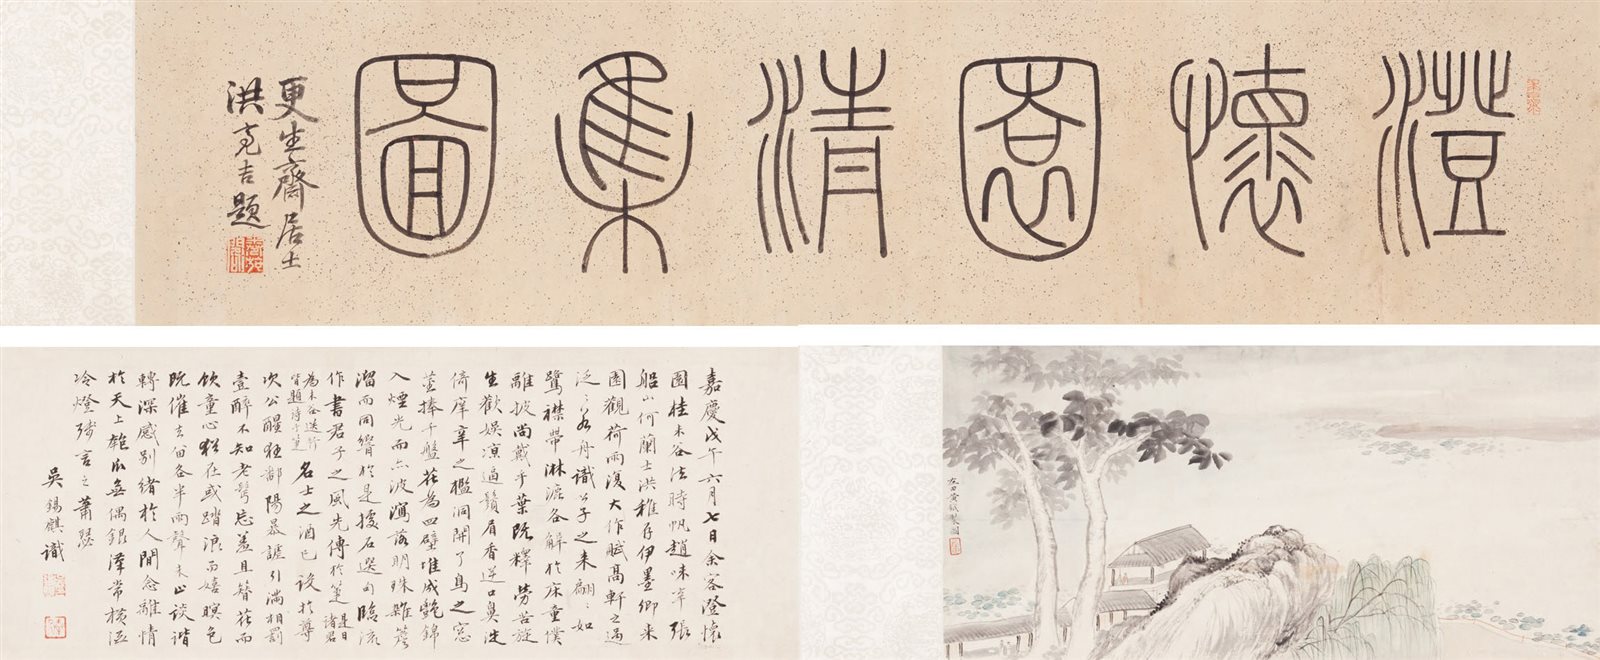 澄懷園清集圖
更生齋居士
洪亮吉題
左田黃鉞製圖
嘉慶戊午六月七日余客澄懷
園桂未谷法時帆趙味辛張
船山何蘭士洪稚存伊墨卿來
園觀荷雨復大作賦高軒之過
泛泛若舟識公子之來翩翩如
鷺襟帶淋漓各解於床童僕
離披尚戴乎葉既釋勞苦旋
生歡娛涼逼鬚眉香逆口鼻迭
倚庠辛之檻洞開了鳥之窓
莖捧千盤花為四壁堆成艷錦
入煙光而亦波瀉落明珠雜簷
溜而同響於是據石選句臨流
作書君子之風先傳於箑是日諸君
為未谷送行皆題詩于箑名士之酒已設於尊
次公醒狂鄱陽暴謔引滿相罰
壹醉不知老鬢忘羞且簪花而
飲童心猶在或踏浪而嬉暝色
既催去留各半雨聲未止談諧
轉深感別緒於人間念離情
於天上匏瓜無偶銀漢常橫洒
冷燈殘言之蕭瑟
吳錫麒識